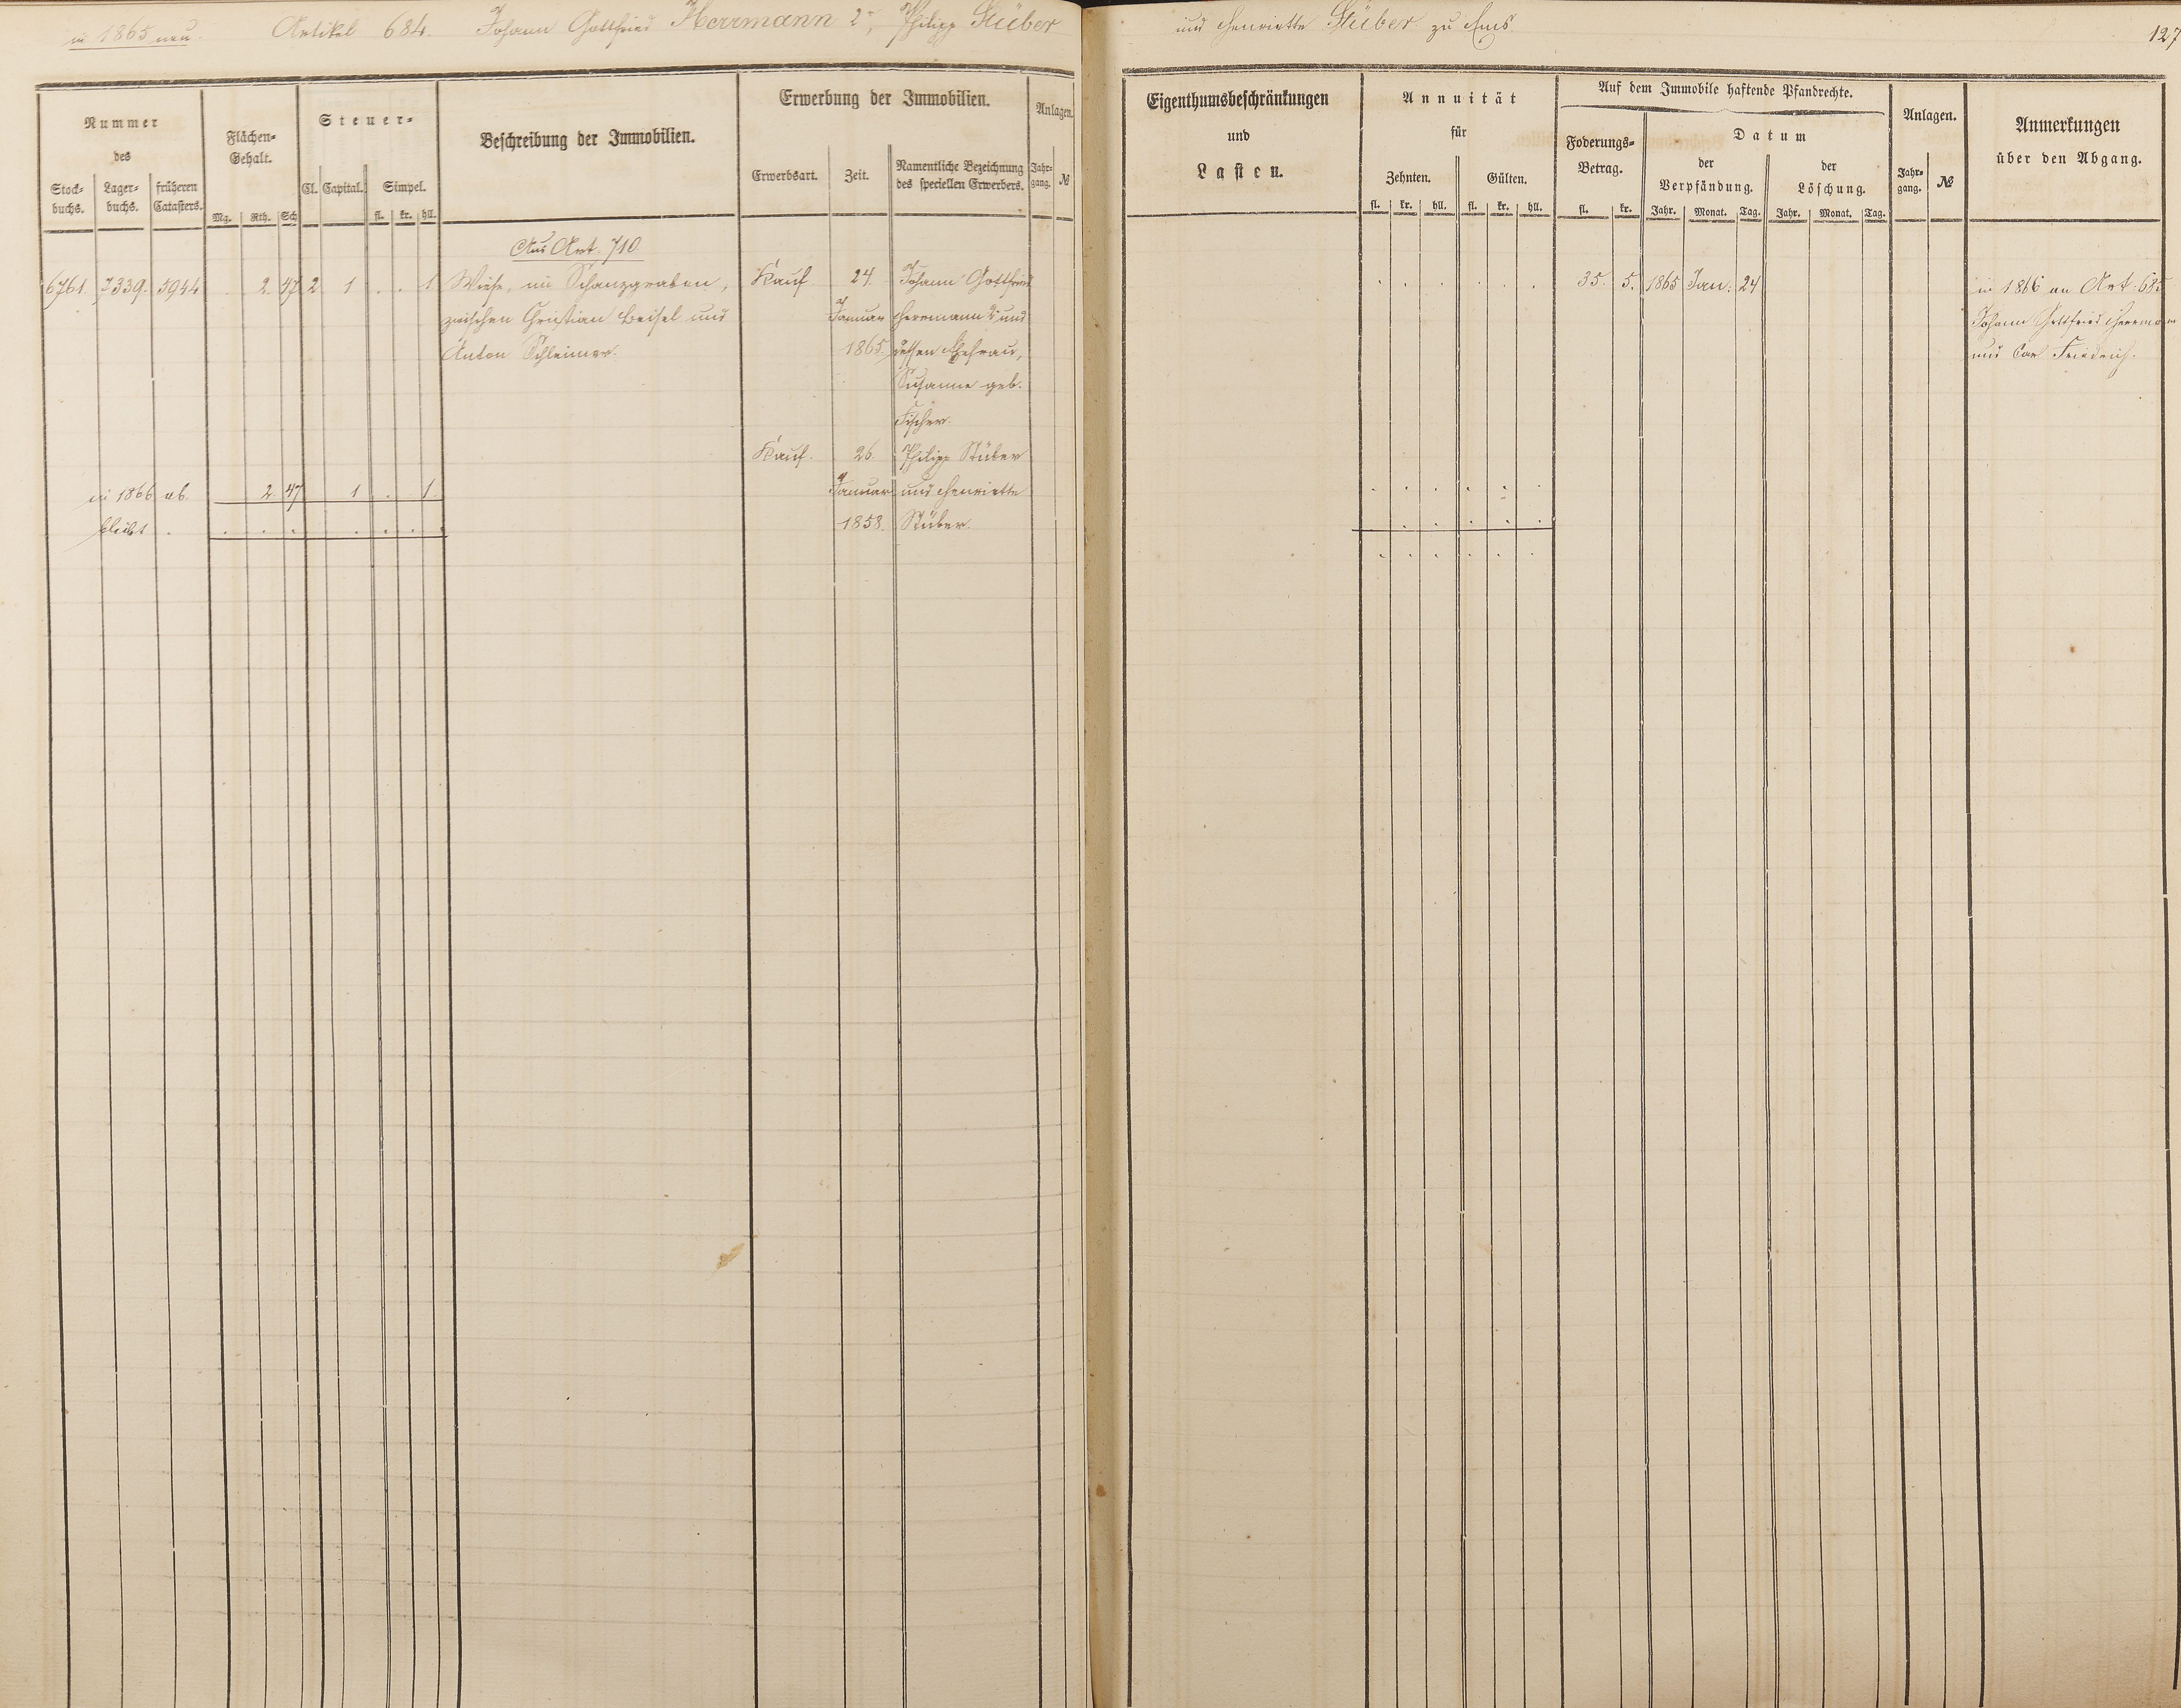 in 1865 neu. Artikel 684. Johann Gottfried Herrmann 2r, Philipp Stüber und Henriette Stüber zu Ems.
127
Nummer
des
Stock-
buchs.
Lager-
buchs.
früheren
Catasters.
Flächen-
Gehalt.
Mg. Rth. Sch
Steuer-
Cl. Capital. Simpel.
fl. kr. hll.
Beschreibung der Immobilien.
Erwerbung der Immobilien.
Erwerbsart. Zeit.
Namentliche Bezeichnung
des speciellen Erwerbers.
Anlagen.
Jahr-
gang.
№
Eigenthumsbeschränkungen
und
Lasten.
Annuität
für
Zehnten. Gülten.
fl. kr. hll. fl. kr. hll.
Auf dem Immobile haftende Pfandrechte.
Foderungs-
Betrag.
fl. kr.
Datum
der
Verpfändung.
Jahr. Monat. Tag.
der
Löschung.
Jahr. Monat. Tag.
Anlagen.
Jahr-
gang.
№
Anmerkungen
über den Abgang.
Aus Art. 710.
6761. 7339. 5944 . 2. 47 2 1 . . 1 Wiese, im Schanzgraben,
zwischen Christian Beisel und
Anton Schleimer.
Kauf. 24.
Januar
1865.
Johann Gottfried
Herrmann 2r und
dessen Ehefrau,
Susanne geb.
Fischer.
Kauf. 26.
Januar
1858.
Philipp Stüber
und Henriette
Stüber.
in 1866 ab. 2. 47 1 . 1.
bleibt . . . . . . .
35. 5. 1865 Jan: 24
in 1866 an Art. 685
Johann Gottfried Herrmann
und Carl Friedrich.